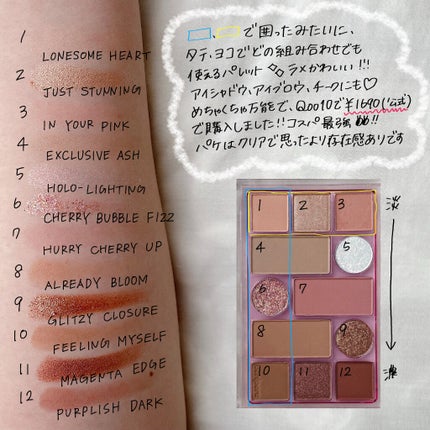 1
LONESOME HEART
2
JUST STUNNING
3
IN YOUR PINK
4
EXCLUSIVE ASH
5
HOLO-LIGHTING
6
CHERRY BUBBLE FIZZ
7
HURRY CHERRY UP
8
ALREADY BLOOM
9
GLITZY CLOSURE
10
FEELING MYSELF
11
MAGENTA EDGE
12
PURPLISH DARK
、 で囲ったみたいに、
タテ、ヨコでどの組み合わせでも
使えるパレット ラメかわいい!!!
アイシャドウ、アイブロウ、チークにも♡
めちゃくちゃ万能で、Qoo10で¥1690(公式)
で購入しました!!コスパ最強 !!
パケはクリアで思ったより存在感ありです
1 2 3
4 5
6 7
8 9
10 11 12
淡
濃